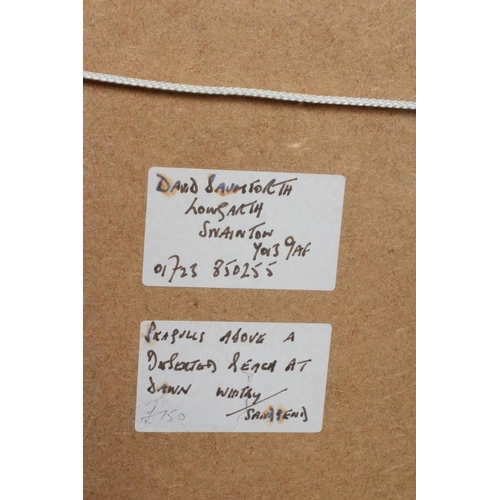 DAVID BAUMFORTH
LOWGARTH
SNAINTON
YO13 9AF
01723 850255
SEAGULLS ABOVE A
DESERTED BEACH AT
DAWN WHITBY/
SANDSEND
£150